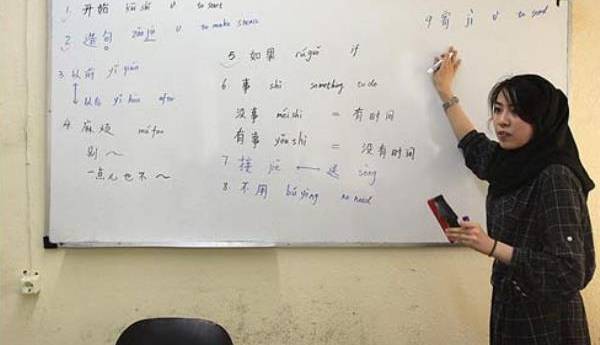 1. 开始 kāi shǐ v to start
2. 造句 zào jù v to make stence
3 以前 yǐ qián
以后 yǐ hòu after
4. 麻烦 má fan
别~
一点儿也不~
5 如果 rú guǒ if
6 事 shì something to do
没事 méi shì = 有时间
有事 yǒu shì = 没有时间
7. 接 jiē ← 送 sòng
8. 不用 bú yòng no need
9 寄 jì v to send